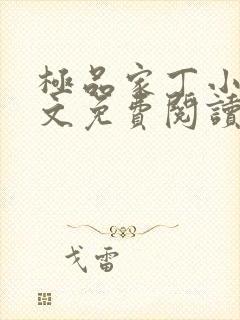 極品家丁小
文免費閱讀
戈雷